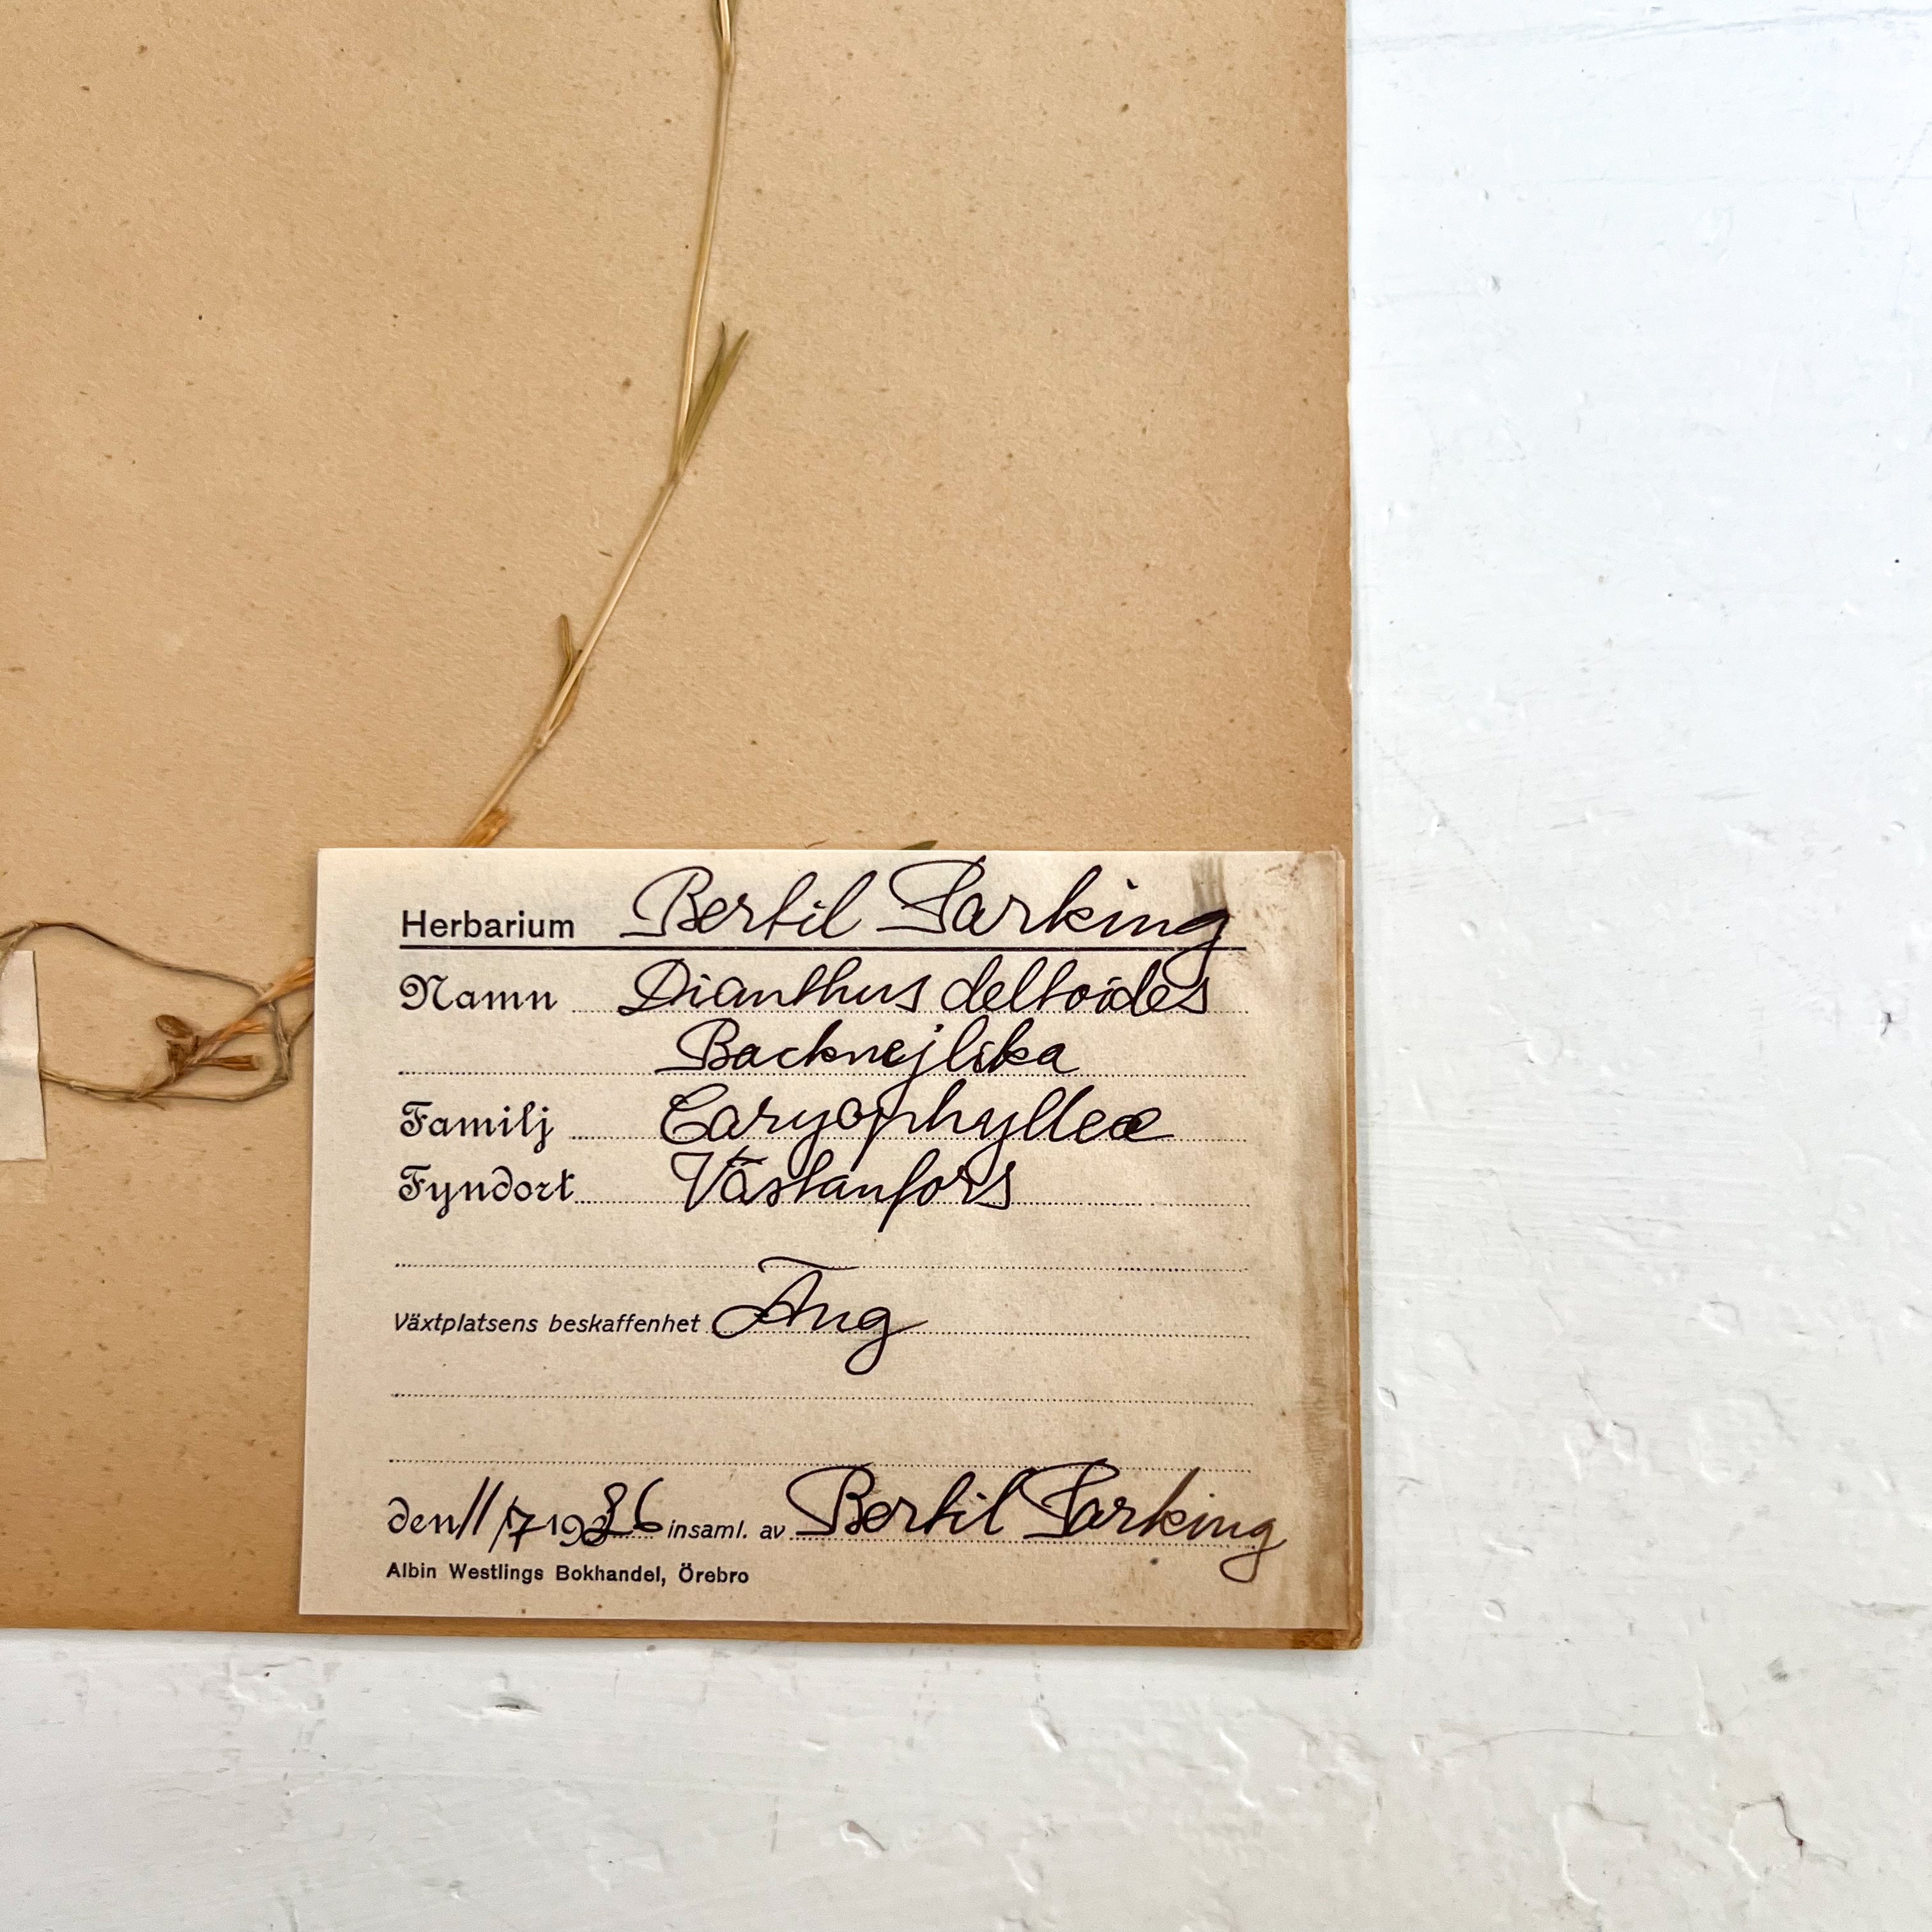 Herbarium Bertil Parking
Namn Dianthus deltoides
Backnejlika
Familj Caryophylleæ
Fyndort Västanfors
Växtplatsens beskaffenhet Äng
den 11/7 19 26 insaml. av Bertil Parking
Albin Westlings Bokhandel, Örebro